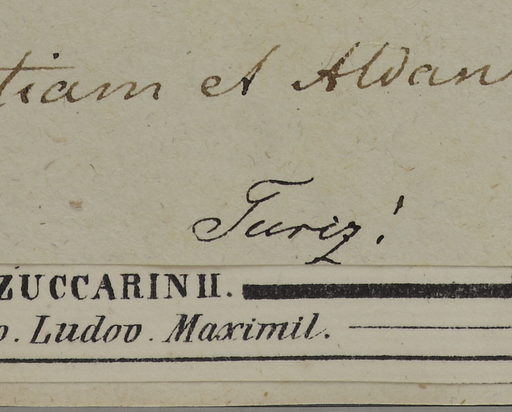 tiam et Aldan
Turcz!
ZUCCARINII.
o. Ludov. Maximil.